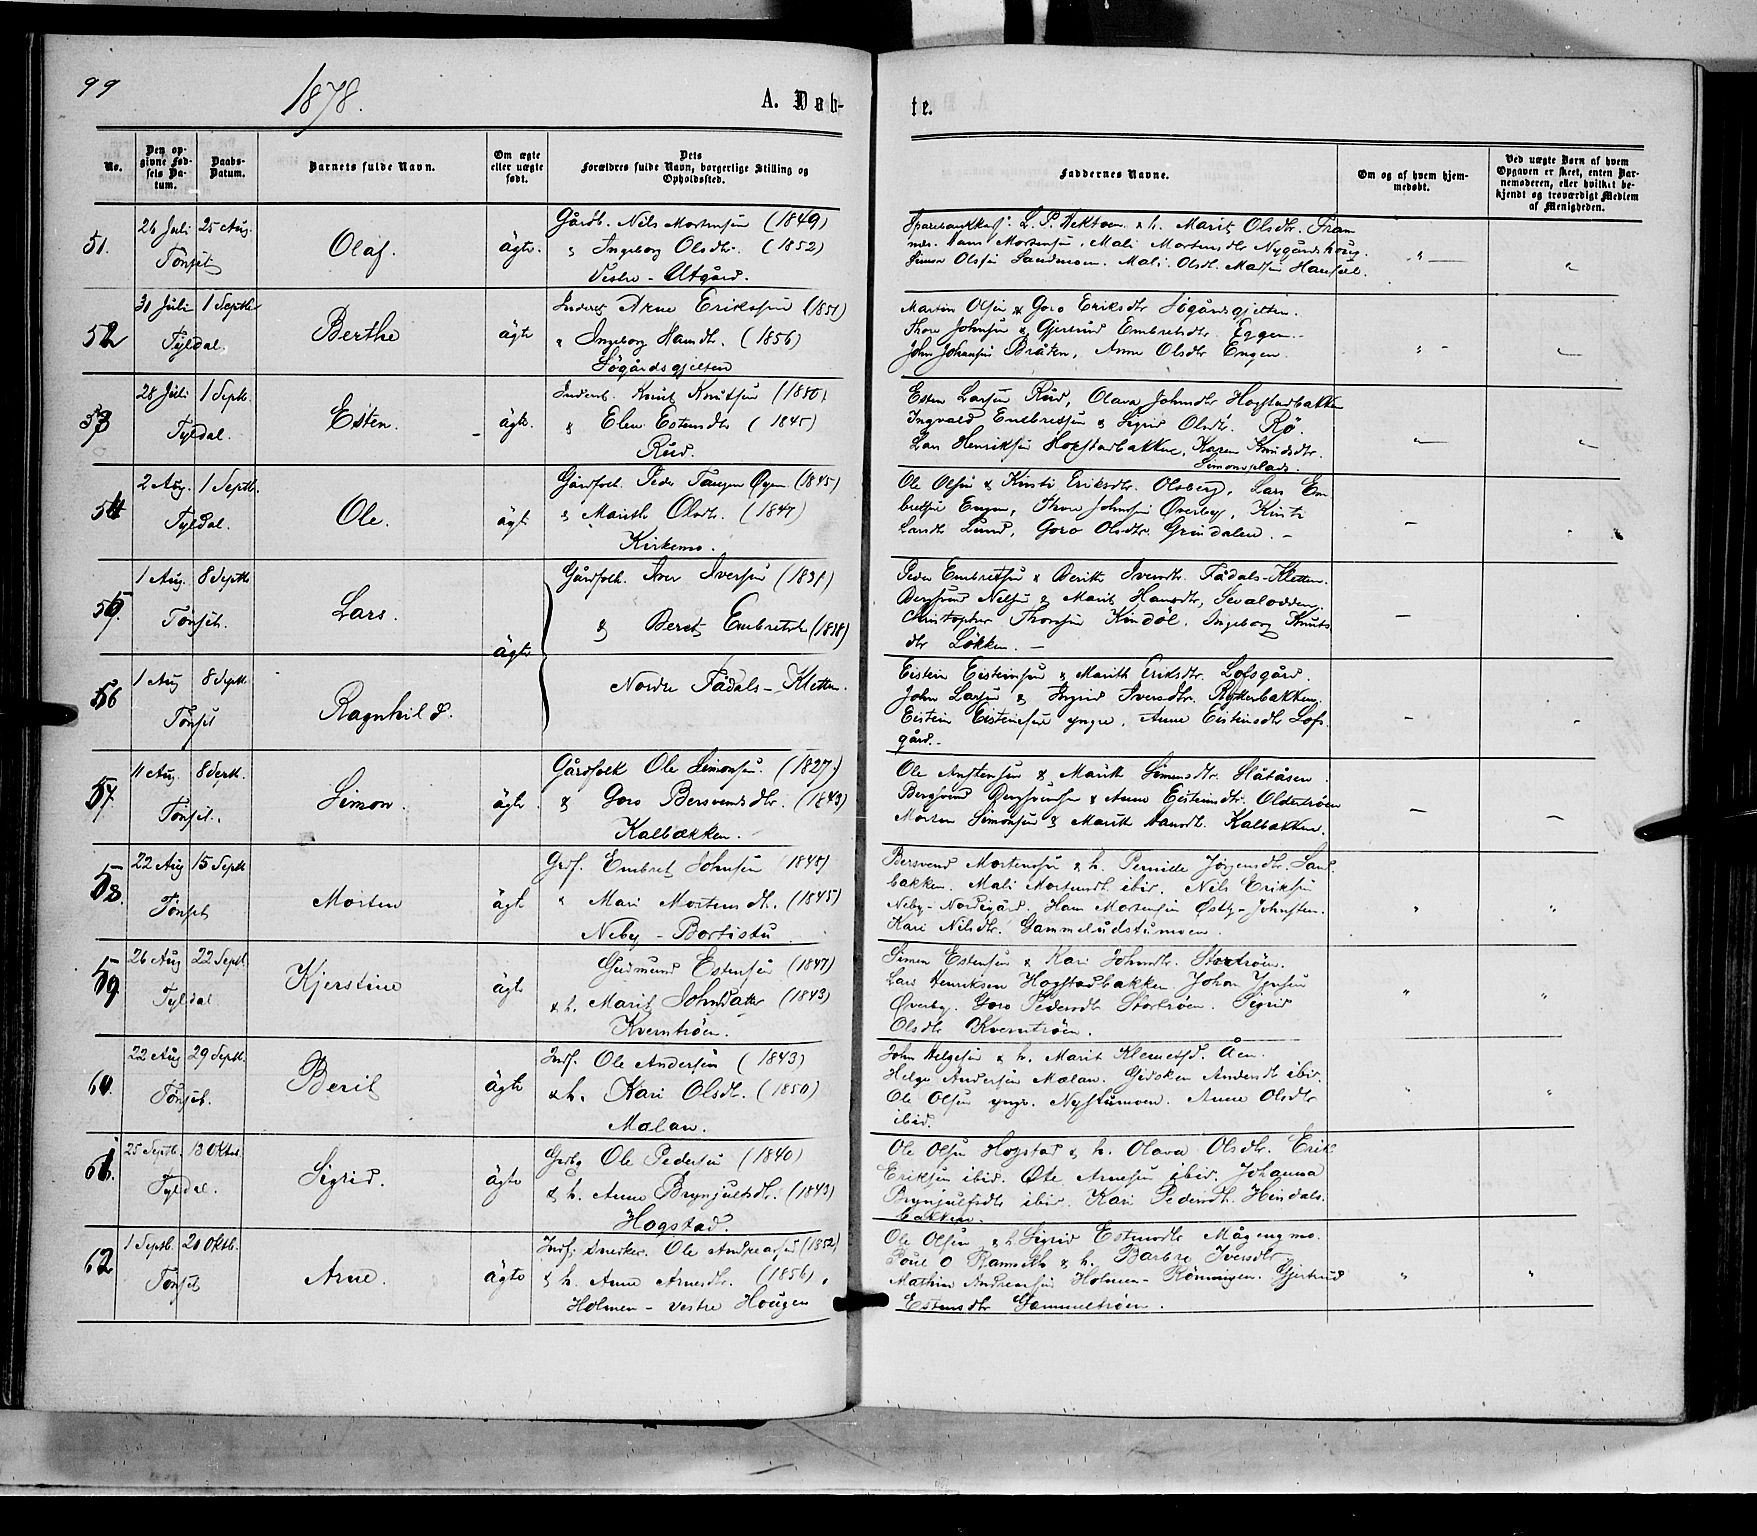 99
1878.
A. Døb-
te.
No.
Den op-
givne Fød-
sels Da-
tum.
Daabs-
Datum.
Barnets fulde Navn.
Om ægte
eller uægte
født.
Dets
Forældres fulde Navn, borgerlige Stilling og
Opholdssted.
Faddernes Navne.
Om og af hvem hjem-
medøbt.
Ved uægte Børn af hvem
Opgaven er skeet, enten Bar-
nemoderen, eller hvilket be-
kjendt og troværdigt Medlem
af Menigheden.
51.
26 Juli
25 Aug.
Tønset
Olaf.
ägte.
Gårdb. Nils Mortensen (1849)
" Ingeborg Olsdtr. (1852)
Vestre - Utgård.
L. P. Vektoen & h. Marit Olsdtr. Fram
mes. Hans Mortensen, Mali Mortensdtr Nygårdshoug.
Simen Olsen Sandmoen. Mali Olsdt.
52
31 Juli
1 Septbr
Tyldal.
Berthe
ägte
Inderst Arne Eriksen (1851)
" Ingeborg Hansdtr. (1856)
Søgårdsgjelten
Martin Olsen & Goro Eriksdtr Søgårdsgjelten.
Thore Johnsen & Gjertrud Embretsdtr. Eggen.
John Johansen Bråten, Anne Olsdtr Engen.
53
28 Juli
1 Septb.
Tyldal.
Esten.
ägte.
Inderst. Knut Knutsen (1850)
& Elen Estensdtr (1845)
Rud.
Esten Larsen Rud, Olava Johnsdtr Hogstadbakken
Ingvald Embretsen & Sigrid Olsdtr. Rø.
Lars Henriksen Hogstadbakken, Karen Knudsdtr.
Simonsplads.
54
2 Aug.
1 Septb.
Tyldal.
Ole.
ägte
Gårdfolk. Peder Tangen Øyen (1845)
& Marith Olsdtr. (1847)
Kirkemo.
Ole Olsen & Kirsti Eriksdtr. Olsberg, Lars Em
bretsen Engen, Thore Johnsen Øverby, Kirsti
Larsdtr Lund, Goro Olsdtr. Grindalen. -
55.
1 Aug.
8 Septb.
Tønset.
Lars.
ägte
Gårdfolk. Iver Iversen (1831)
& Beret Embretsdtr (1838)
Peder Embretsen & Berith Iversdtr. Fådals-Kletten.
Bersvend Nilsen & Marit Hansdtr, Sevalodden.
Christopher Thoresen Kindøl, Ingeborg Knuts
dtr Løkken. -
56
1 Aug
8 Septb.
Tønset
Ragnhild.
Nordre Fådals-Kletten.
Eistein Eisteinsen & Marith Eriksdtr. Lofsgård.
John Larsen & Ingrid Iversdtr. Rytterbakken,
Eistein Eisteinsen yngre, Anne Eisteinsdtr Lofs
gård.-
57.
11 Aug.
8 Septb.
Tønset.
Simon.
ägte
Gårdfolk Ole Simonsen. (1827)
& Goro Bersvendsdtr. (1843)
Kalbækken.
Ole Anstensen & Marith Simensdtr. Slåtåsen.
Bersvend Bersvendsen & Anne Eisteinsdtr. Oldertrøen
Morten Simonsen & Marith Hansdtr. Kalbækken.
58.
22 Aug
15 Septb
Tønset
Morten
ägte
Grdf. Embret Johnsen (1848)
" Mari Mortensdtr. (1845)
Neby - Bortistu
Bersvend Mortensen & h. Pernille Jørgensdtr. Sand
bakken. Mali Mortensdtr ibid. Nils Eriksen
Neby-Nordigård, Hans Mortensen Østby-Johnsten.
Kari Nilsdtr. Gammeludstumoen.
59
26 Aug
22 Septb.
Tyldal
Kjerstine
ägte
Gudmund Estensen (1847)
& h. Marit Johnsdatter (1843)
Kverntrøen.
Simen Estensen & Kari Johnsdtr. Stortrøen.
Lars Henriksen Hogstadbakken Johan Jonsen
Øverby. Goro Pedersdtr Stortrøen. Sigrid
Olsdtr Kverntrøen.
60.
22 Aug
29 Septb.
Tønset.
Berit
ägte
Indf. Ole Andersen (1843)
& h. Kari Olsdtr. (1850)
Mælan.
John Helgesen & h. Marit Klemetsd. Åen.
Helge Andersen Mælan. Gidsken Andersdtr ibid.
Ole Olsen yngr. Nystumoen. Anne Olsdtr
ibid.
61.
25 Septb.
13 Oktbr.
Tyldal.
Sigrid.
ägte
Grdbr. Ole Pedersen (1840)
& h. Anne Brynjulfsdtr. (1843)
Hogstad.
Ole Olsen Hogstad & h. Olava Olsdtr. Erik
Eriksen ibid. Ole Arnesen ibid. Johanna
Brynjulfsdtr ibid. Kari Pedersdtr. Hindals-
bakken.
62
1 Septb.
20 Oktb.
Tønset
Arne.
ägte
Indf. Snedker. Ole Andreassen (1852)
& h. Anne Arnesdtr. (1856),
Holmen - vestre Hougen
Ole Olsen & h. Sigrid Estensdtr Mågengmo.
Poul O Ramseth & h. Barbro Iversdtr
Mathias Andreassen Holmen-Rønningen. Gjertrud
Estensdtr Gammeltrøen.